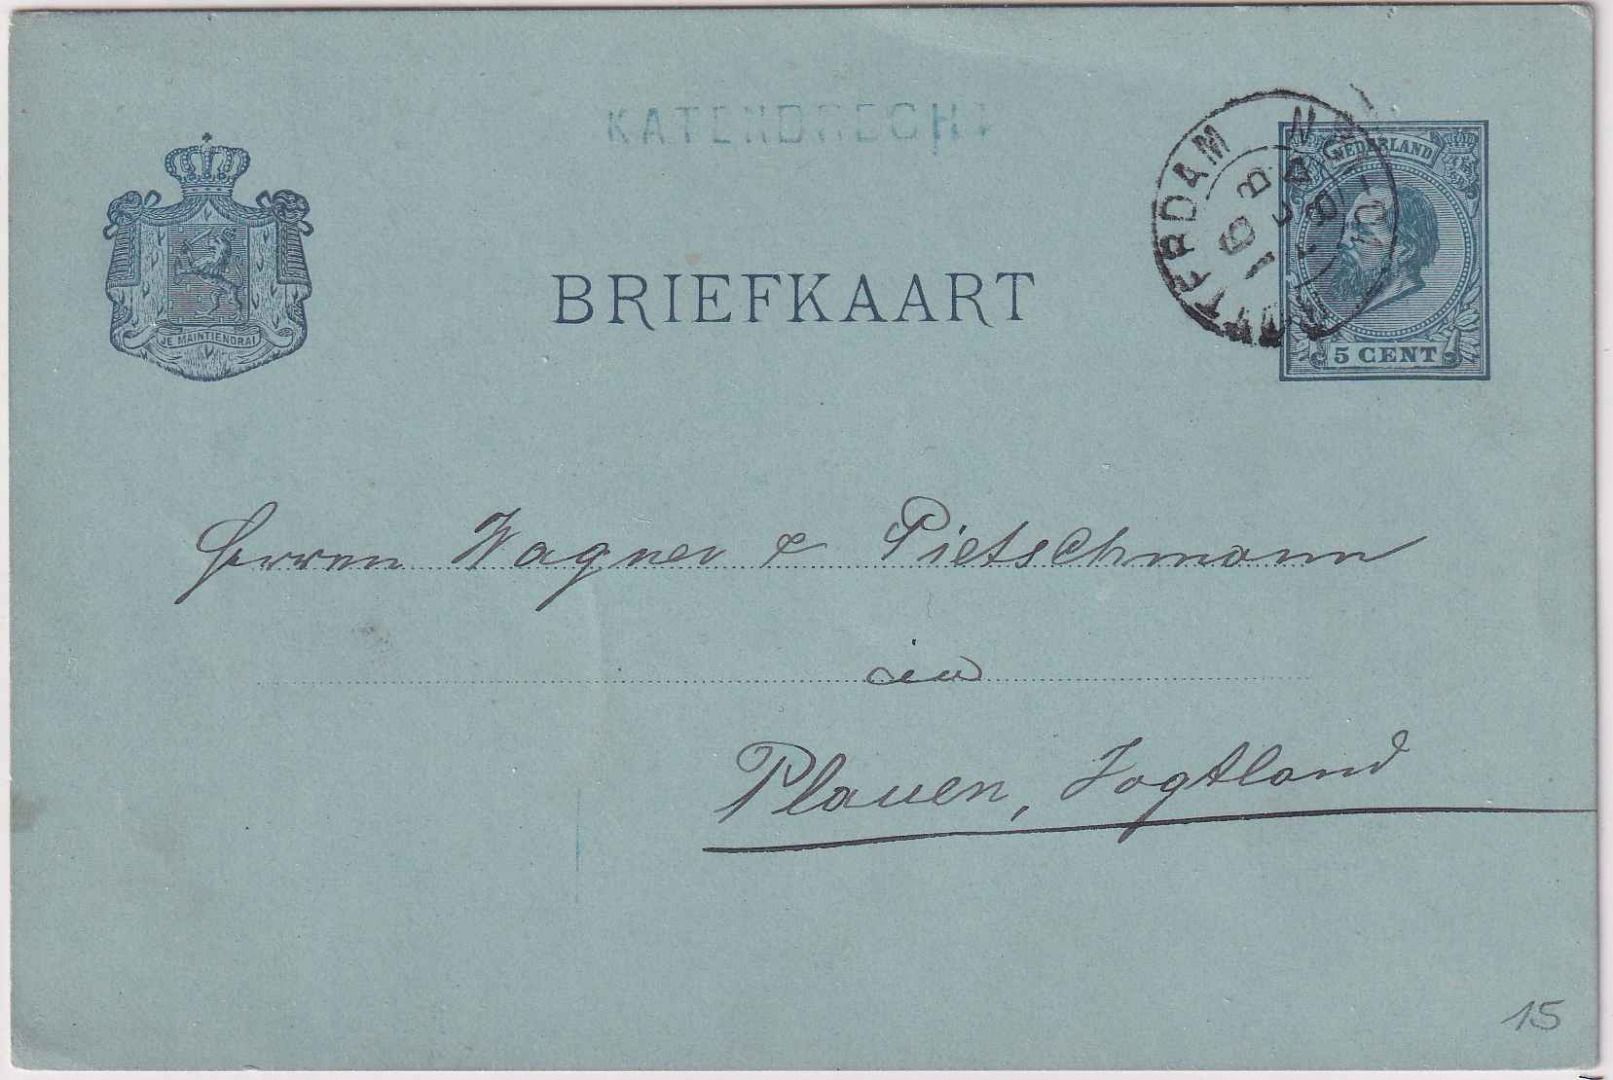 KATENDRECHT
NEDERLAND
JE MAINTIENDRAI
BRIEFKAART
5 CENT
Herren Wagner & Pietschmann
in
Plauen, Vogtland
15